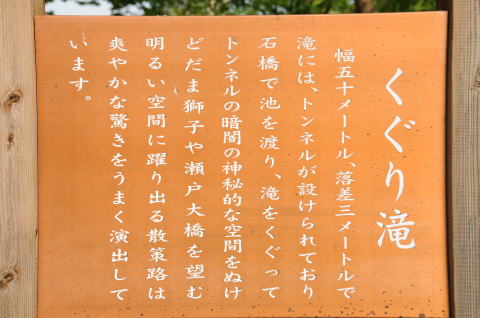 くぐり滝
幅五十メートル、落差三メートルで
滝には、トンネルが設けられており
石橋で池を渡り、滝をくぐって
トンネルの暗闇の神秘的な空間をぬけ
どだま獅子や瀬戸大橋を望む
明るい空間に躍り出る散策路は
爽やかな驚きをうまく演出して
います。